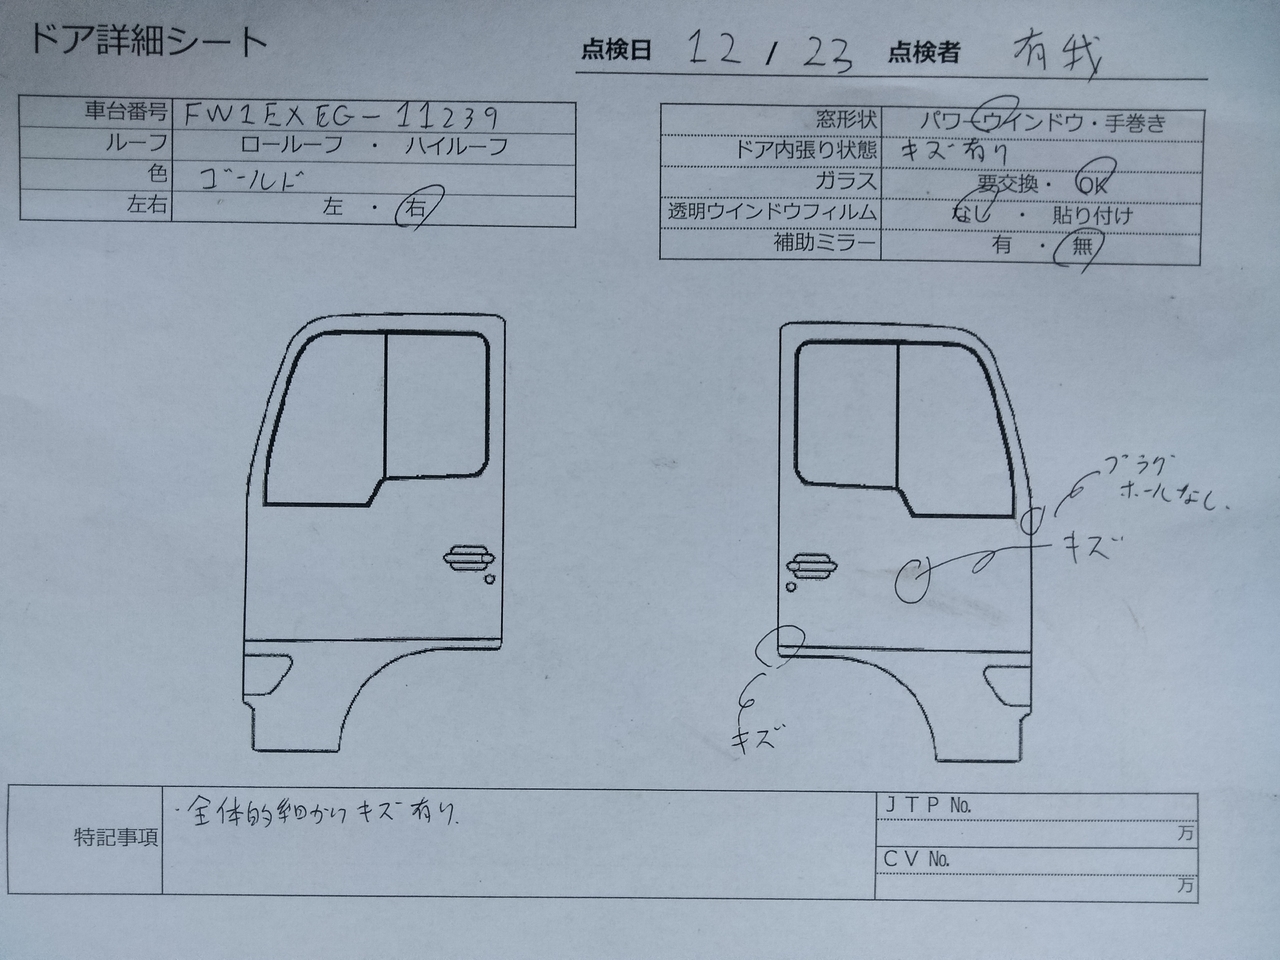 ドア詳細シート
点検日 12 / 23 点検者 有我
車台番号 FW1EXEG-11239
ルーフ ロールーフ ・ ハイルーフ
色 ゴールド
左右 左 ・ 右
窓形状 パワーウインドウ・手巻き
ドア内張り状態 キズ有り
ガラス 要交換・ OK
透明ウインドウフィルム なし ・ 貼り付け
補助ミラー 有 ・ 無
フラグ
ホールなし.
キズ
キズ
特記事項
・全体的細かいキズ有り.
JTP No.
万
CV No.
万